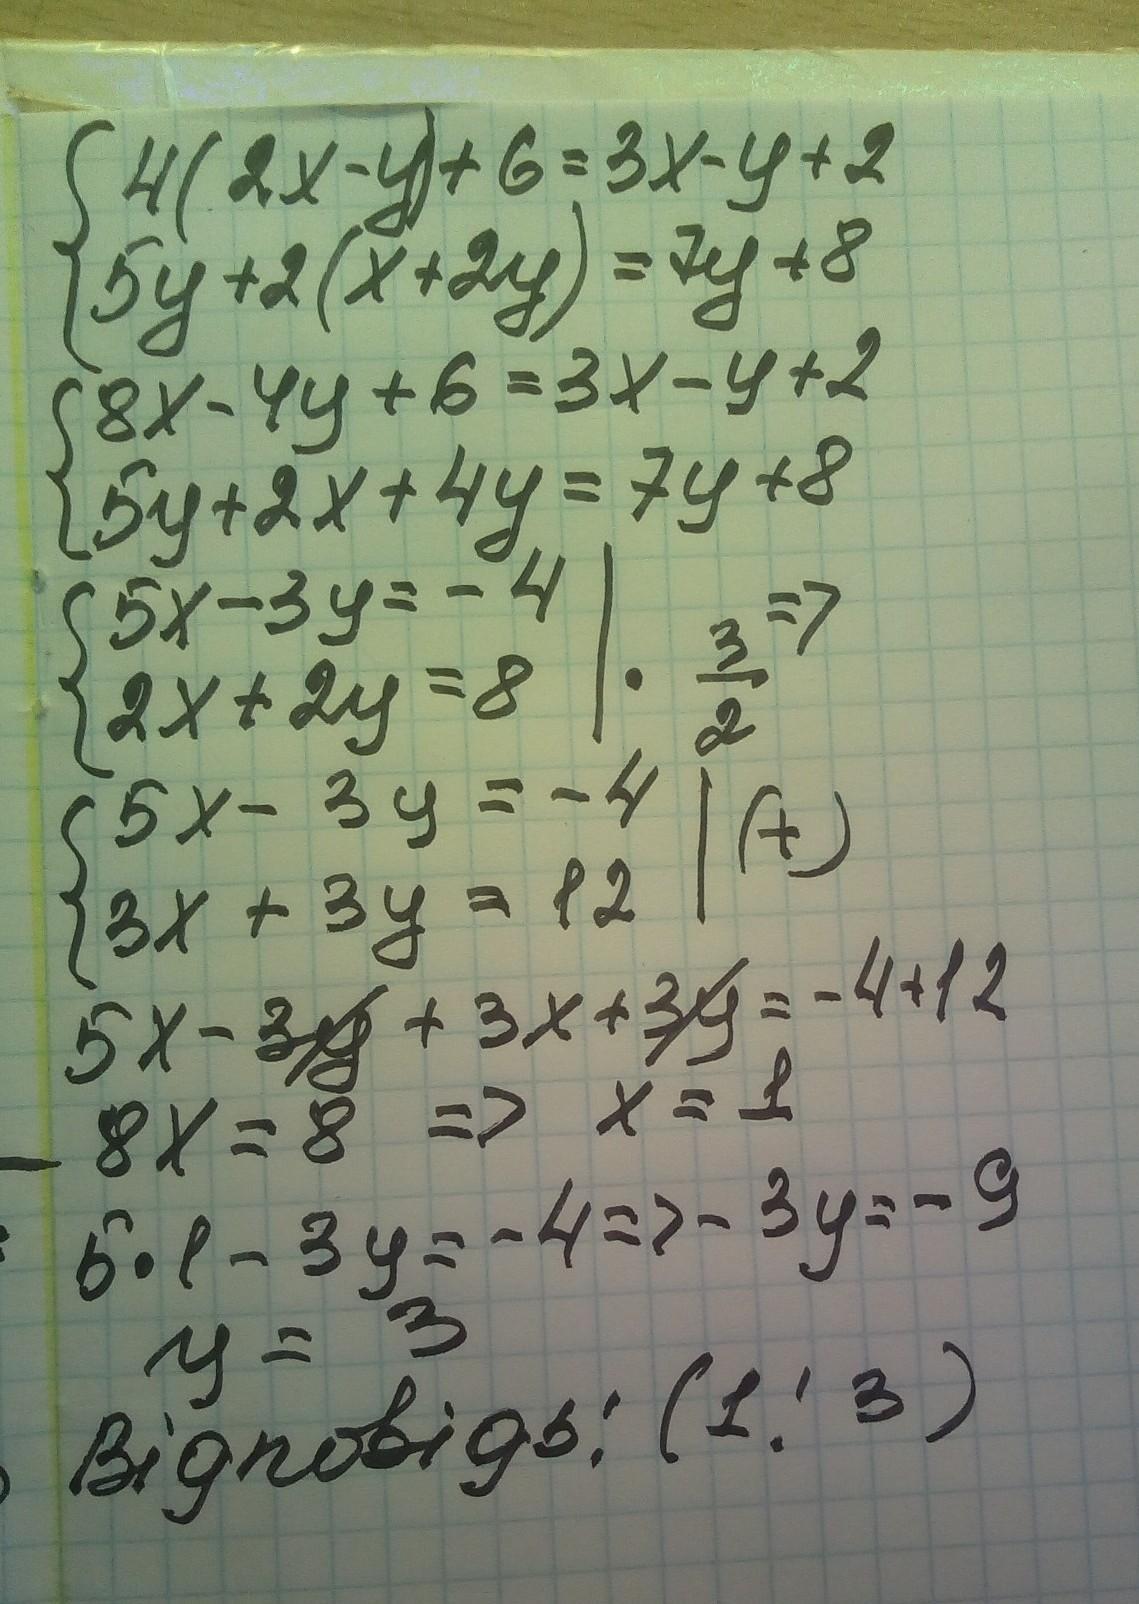 4(2x-y)+6=3x-y+2
5y+2(x+2y)=7y+8
8x-4y+6=3x-y+2
5y+2x+4y=7y+8
5x-3y=-4
2x+2y=8 | · 3/2 =>
5x-3y=-4
3x+3y=12 | (+)
5x-3y+3x+3y=-4+12
8x=8 => x=1
5·1-3y=-4=>-3y=-9
y=3
Відповідь: (1; 3)